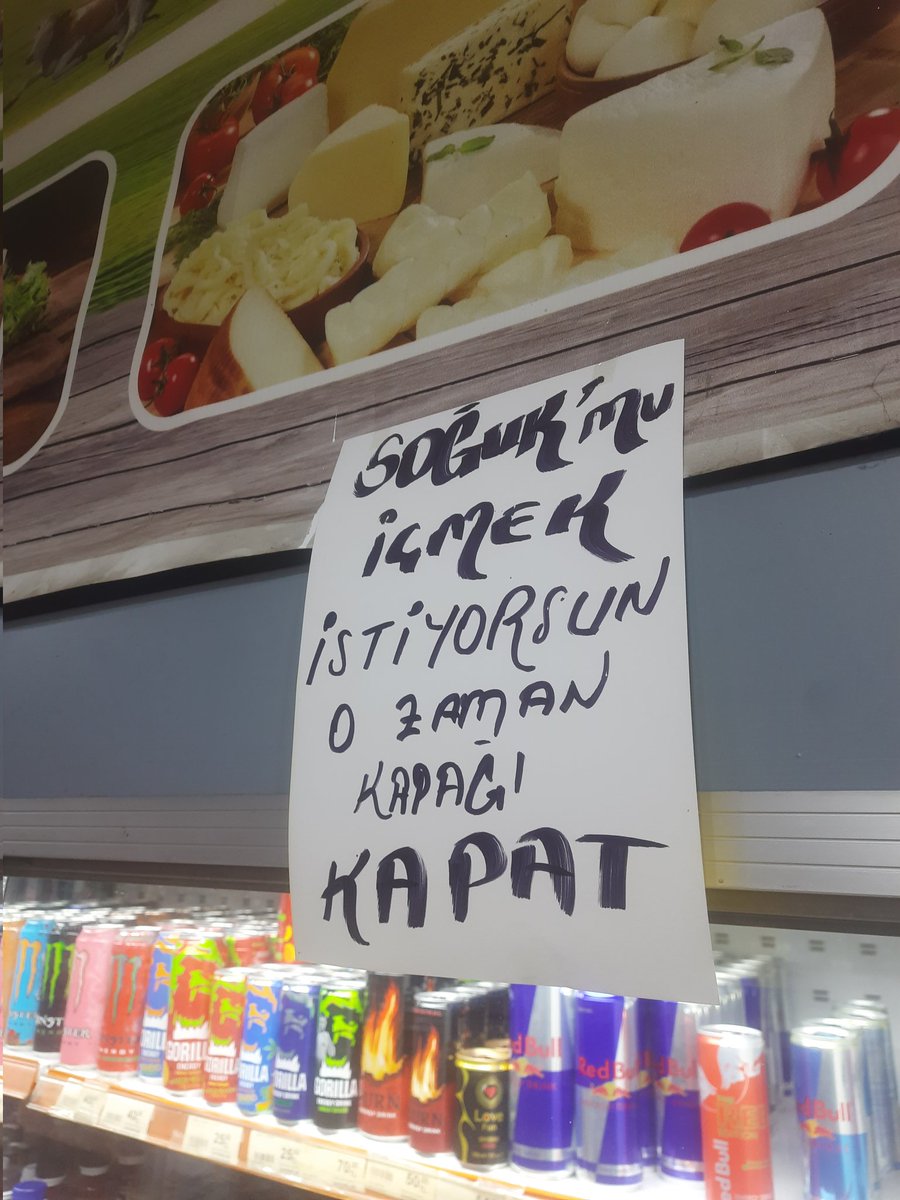 SOĞUK'MU
İÇMEK
İSTİYORSUN
O ZAMAN
KAPAĞI
KAPAT
GORILLA
GORILLA
GORILLA
BURN
Love
RedBull
RedBull
RedBull
RedBull